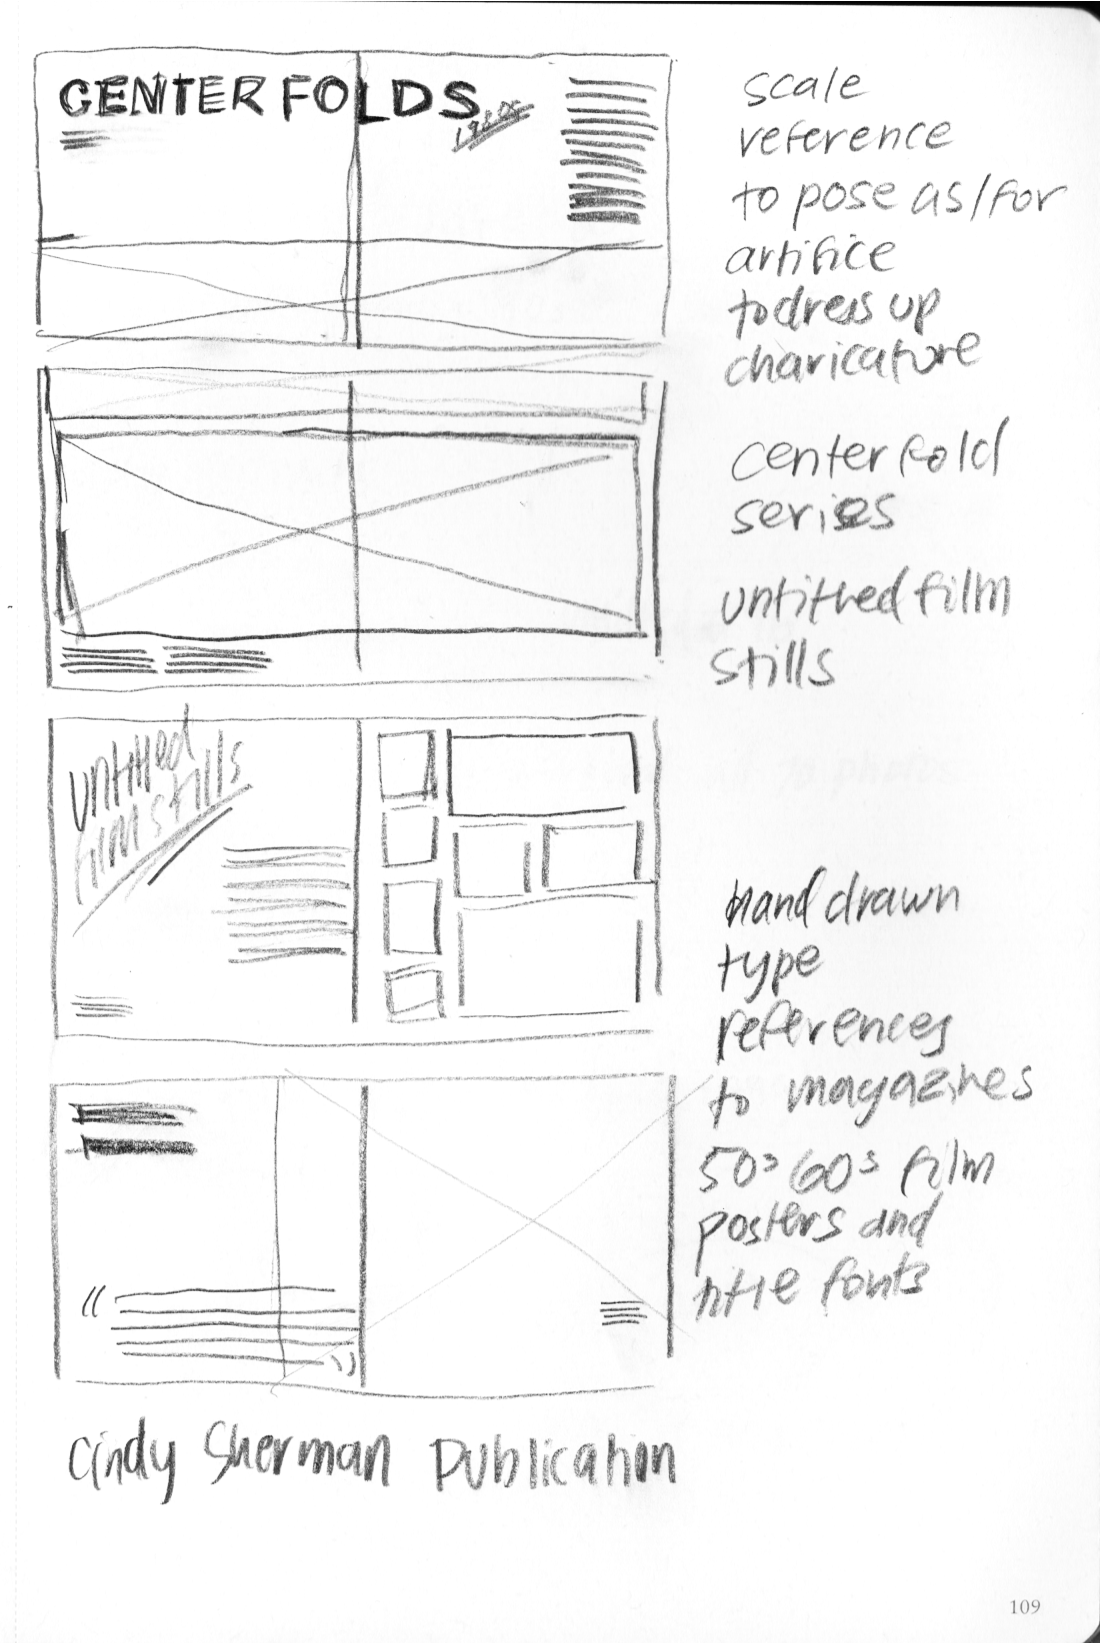 CENTER FOLDS
1980s
scale
reference
to pose as/for
artifice
to dress up
charicature
center fold
series
untitled film
stills
untitled
film stills
hand drawn
type
references
to magazines
50s 60s film
posters and
title fonts
Cindy Sherman Publication
109